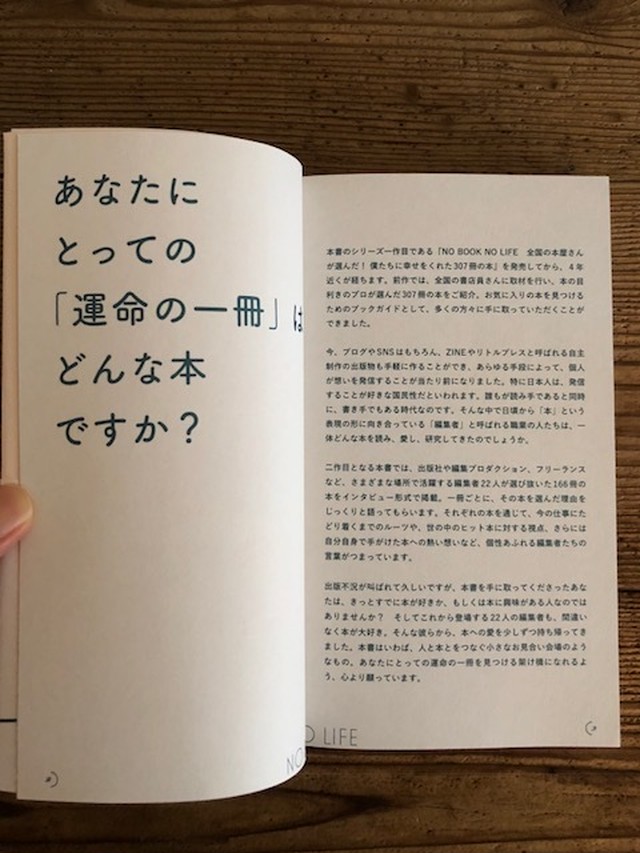 あなたに
とっての
「運命の一冊」は
どんな本
ですか？
本書のシリーズ一作目である『NO BOOK NO LIFE　全国の本屋さん
が選んだ！ 僕たちに幸せをくれた307冊の本』を発売してから、4年
近くが経ちます。前作では、全国の書店員さんに取材を行い、本の目
利きのプロが選んだ307冊の本をご紹介。お気に入りの本を見つける
ためのブックガイドとして、多くの方々に手に取っていただくことが
できました。
今、ブログやSNSはもちろん、ZINEやリトルプレスと呼ばれる自主
制作の出版物も手軽に作ることができ、あらゆる手段によって、個人
が想いを発信することが当たり前になりました。特に日本人は、発信
することが好きな国民性だといわれます。誰もが読み手であると同時
に、書き手でもある時代なのです。そんな中で日頃から「本」という
表現の形に向き合っている「編集者」と呼ばれる職業の人たちは、一
体どんな本を読み、愛し、研究してきたのでしょうか。
二作目となる本書では、出版社や編集プロダクション、フリーランス
など、さまざまな場所で活躍する編集者22人が選び抜いた166冊の
本をインタビュー形式で掲載。一冊ごとに、その本を選んだ理由を
じっくりと語ってもらいます。それぞれの本を通じて、今の仕事にた
どり着くまでのルーツや、世の中のヒット本に対する視点、さらには
自分自身で手がけた本への熱い想いなど、個性あふれる編集者たちの
言葉がつまっています。
出版不況が叫ばれて久しいですが、本書を手に取ってくださったあな
たは、きっとすでに本が好きか、もしくは本に興味がある人なのでは
ありませんか？　そしてこれから登場する22人の編集者も、間違い
なく本が大好き。そんな彼らから、本への愛を少しずつ持ち帰ってき
ました。本書はいわば、人と本とをつなぐ小さなお見合い会場のよう
なもの。あなたにとっての運命の一冊を見つける架け橋になれるよ
う、心より願っています。
NO
O LIFE